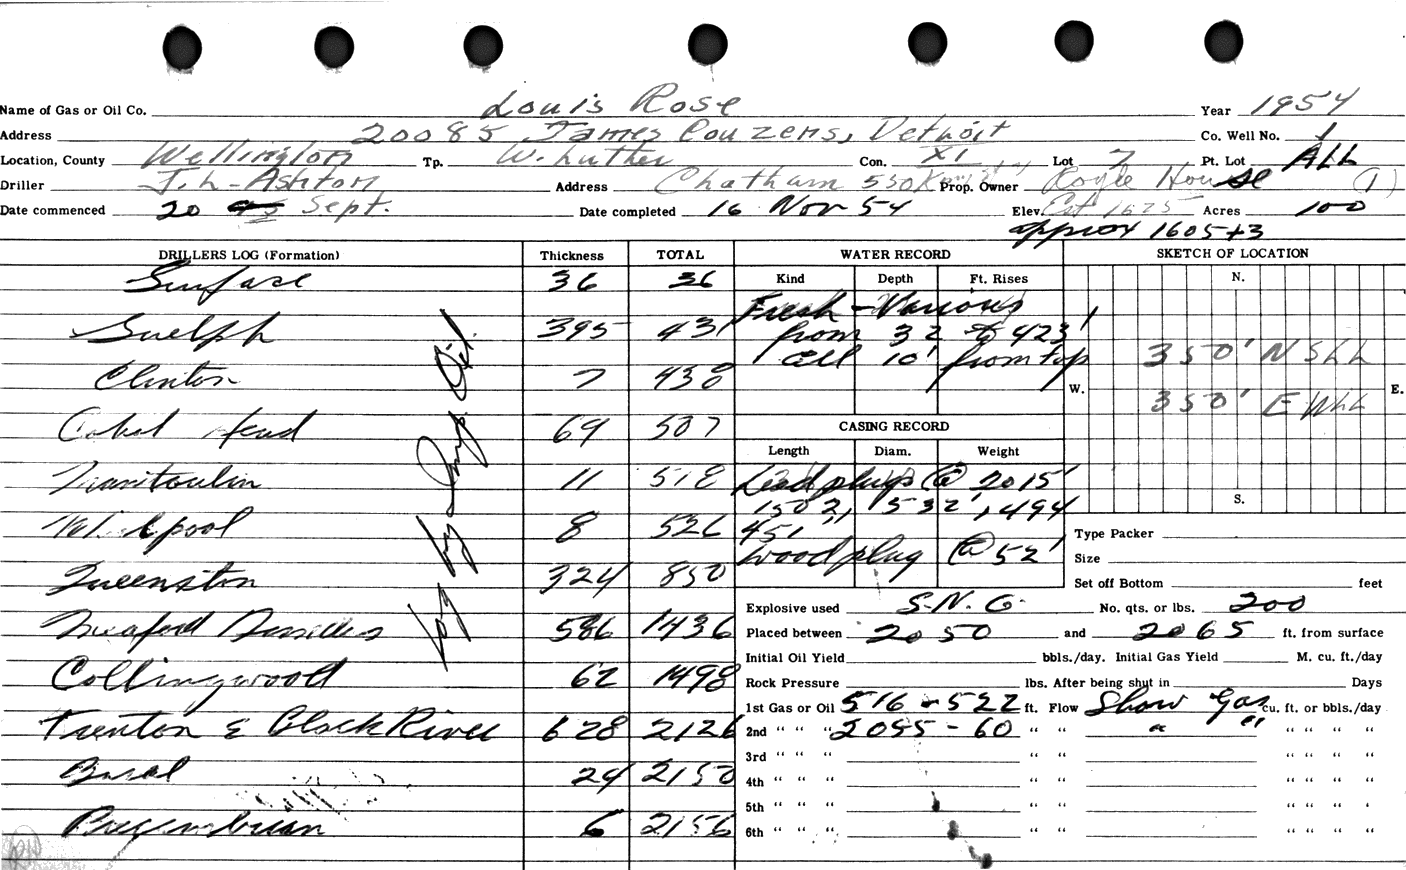 Name of Gas or Oil Co. Louis Rose Year 1954
Address 20085 James Couzens, Detroit Co. Well No. 1
Location, County Wellington Tp. W. Luther Con. XI Lot 7 Pt. Lot ALL
Driller J. L. Ashton Address Chatham 550 Prop. Owner Royle House (1)
Date commenced 20 Sept. Date completed 16 Nov 54 Elev. Est 1625 Acres 100
approx 1605+3
DRILLERS LOG (Formation) Thickness TOTAL
Surface 36 36
Guelph 395 431
Clinton 7 438
Cabot Head 69 507
Manitoulin 11 518
Whirlpool 8 526
Queenston 324 850
Meaford Dundas 586 1436
Collingwood 62 1498
Trenton & Black River 628 2126
Basal 24 2150
Precambrian 6 2156
log by Imp. Oil.
WATER RECORD
Kind Depth Ft. Rises
Fresh - Various
from 32 to 423'
all 10' from top
CASING RECORD
Length Diam. Weight
Lead plugs @ 2015'
1502', 1532', 1494
451'
Wood plug @ 52'
SKETCH OF LOCATION
N.
350' N SLL
W. E.
350' E WLL
S.
Type Packer
Size
Set off Bottom feet
Explosive used S.N.G. No. qts. or lbs. 200
Placed between 2050 and 2065 ft. from surface
Initial Oil Yield bbls./day. Initial Gas Yield M. cu. ft./day
Rock Pressure lbs. After being shut in Days
1st Gas or Oil 516-522 ft. Flow Show Gas cu. ft. or bbls./day
2nd " " " 2055-60 " " " " " " " "
3rd " " " " " " " " "
4th " " " " " " " " "
5th " " " " " " " " '
6th " " " " " " " " "